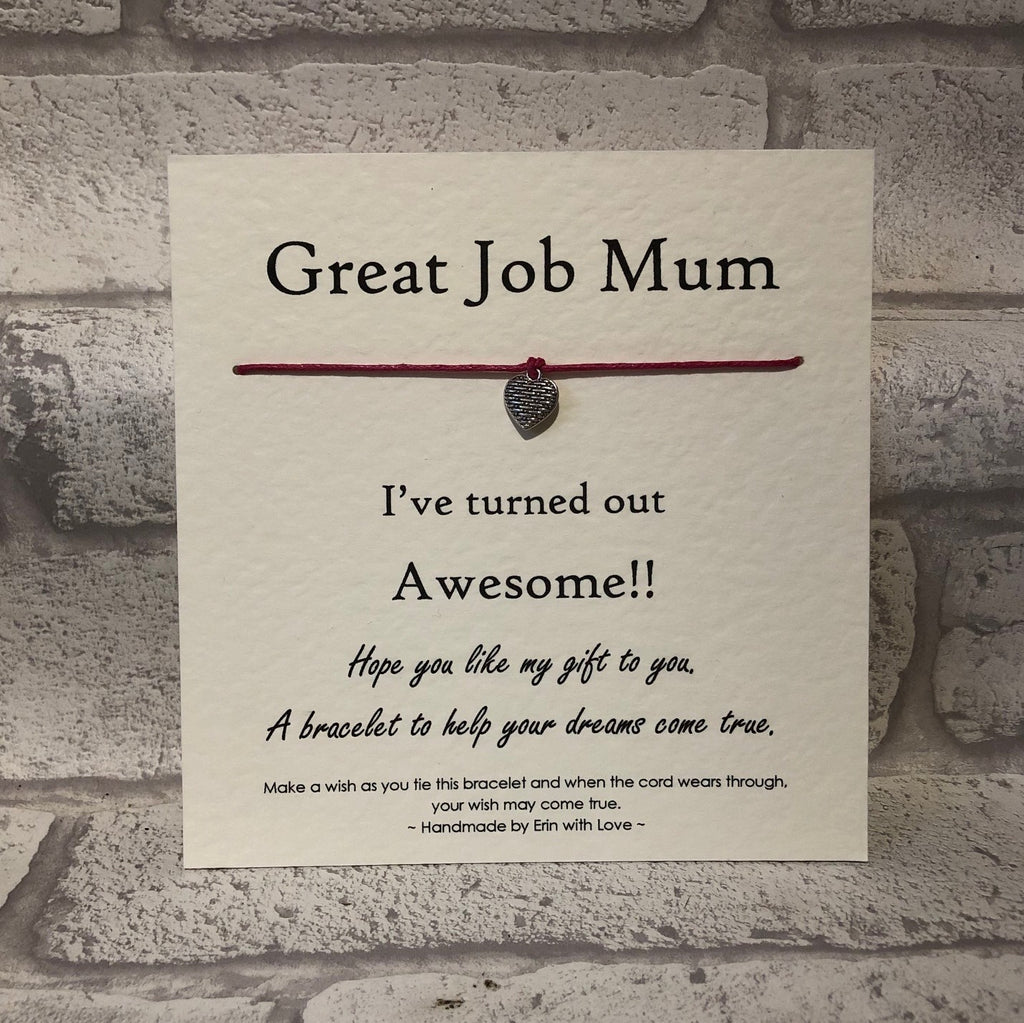 Great Job Mum
I've turned out
Awesome!!
Hope you like my gift to you.
A bracelet to help your dreams come true.
Make a wish as you tie this bracelet and when the cord wears through,
your wish may come true.
~ Handmade by Erin with Love ~